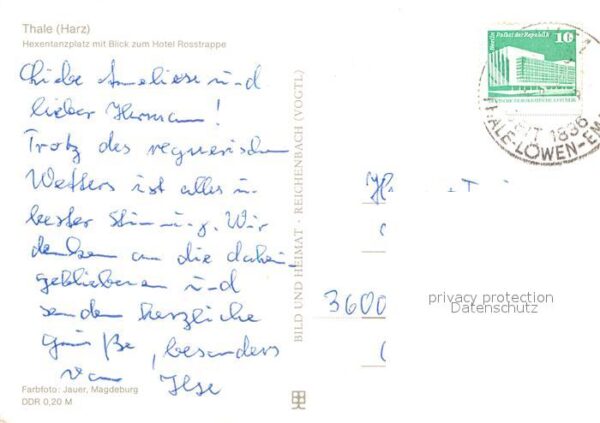 Thale (Harz)
Hexentanzplatz mit Blick zum Hotel Rosstrappe
Liebe Anneliese und
lieber Hermann!
Trotz des regnerischen
Wetters ist alles in
bester Stimmung. Wir
denken an die daheim-
gebliebenen und
senden herzliche
Grüße, besonders
von Ilse
Farbfoto: Jauer, Magdeburg
DDR 0,20 M
BILD UND HEIMAT · REICHENBACH (VOGTL)
Berlin Palast der Republik
10
SEIT 1836
THALE-LÖWEN-EM
3600
privacy protection
Datenschutz